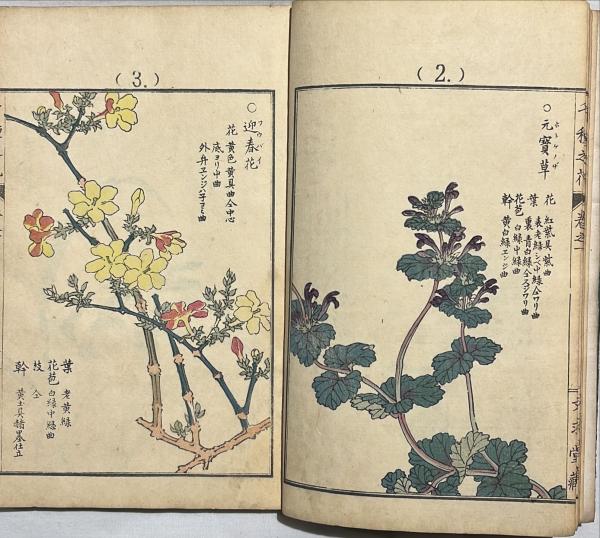 (2.)
○元寶草
ホトケノザ
花 紅紫具紫曲
葉 表老緑シベ中緑仝ワリ曲
裏青白緑仝スジワリ曲
花芭 白緑中緑曲
幹 黄白緑エンジ曲
千種之花
巻之一
(3.)
○迎春花
ワウバイ
花 黄色黄具曲仝中心
底ヨリ中曲
外弁エンジハ
曲
葉 老黄緑
花芭 白緑中緑曲
枝 仝
幹 黄土具赭墨仝仕立